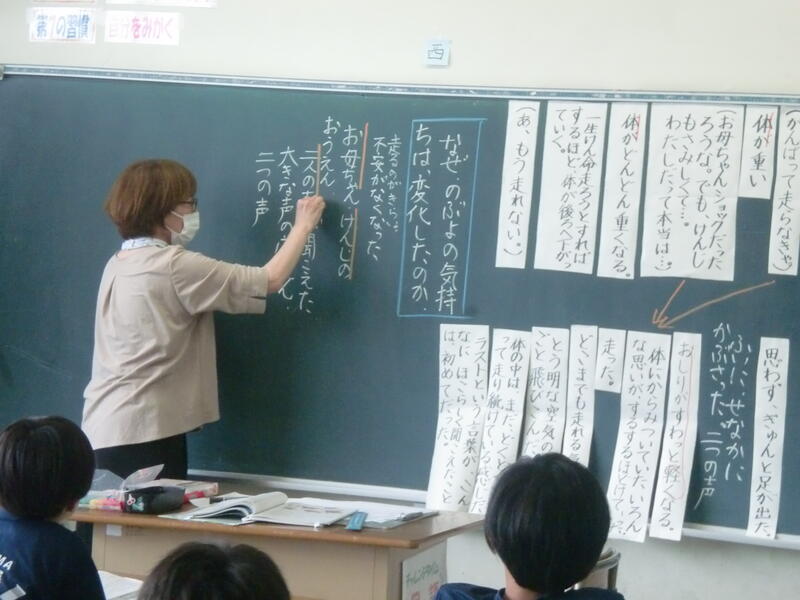 第1の習慣
自分をみがく
西
(がんばって走らなきゃ)
体が重い
(お母ちゃんショックだった
ろうな。でも、けんじ
もさみしくて…。
わたしだって本当は…。)
体がどんどん重くなる。
一生けん命走ろうとすれば
するほど、体が後ろへ下がっ
ていく。
(あ、もう走れない。)
思わず、ぎゅんと足が出た。
ふいに、せなかに
かぶさった。二つの声
おしりがすわっと軽くなる。
体にからみついていたいろん
な思いが、するするほどけて
走った。
どこまでも走れる
とう明な空気の
体の中は、まだどくど
って走り続けて
ラストという言葉が、こん
なに、ほこらしく聞こえたこと
は、初めてだった。
なぜ、のぶよの気持
ちは、変化したのか。
走るのがきらい
不安がなくなった
お母ちゃん、けんじの
おうえん
聞こえた
大きな声の
二つの声
チャレンジタイム